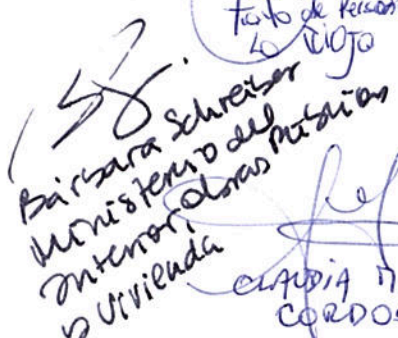 Trata de Person
La Rioja
Bárbara Schreiber
Ministerio del
Interior, Obras Públicas
y Vivienda
CLAUDIA M
CORDO